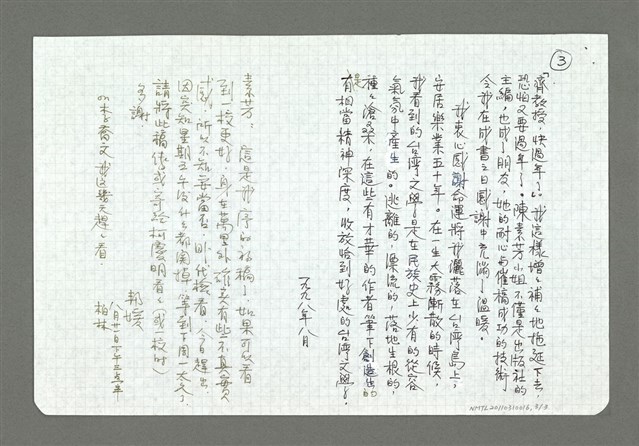 ③
「齊教授，快過年了。」我這樣增增補補地拖延下去，
恐怕又要過年了。陳素芳小姐不僅是出版社的
主編，也成了朋友，她的耐心與催稿成功的技術
令我在成書之日感謝中充滿了溫暖。
我衷心感謝命運將我灑落在台灣島上，
安居樂業五十年。在一生大霧漸散的時候，
我看到的台灣文學是在民族史上少有的從容
氣氛中產生的。逃離的，漂流的，落地生根的，
種種滄桑，在這些有才華的作者筆下創造出的
是有相當精神深度，收放恰到好處的台灣文學。
一九九八年八月
素芳：這是我序的初稿了，如果可以看
到一校更好，身在萬里外，確實有些不真實
感，所以不知妥當否，
因突知星期五下午後什麼都關掉，等到下周一太久了，
請將此稿傳或寄給柯慶明看看（或一校時）
多謝
邦媛
八月廿一日下午三點半
柏林
李喬文我這幾天趕趕看。
NMTL20110310016, 3/3